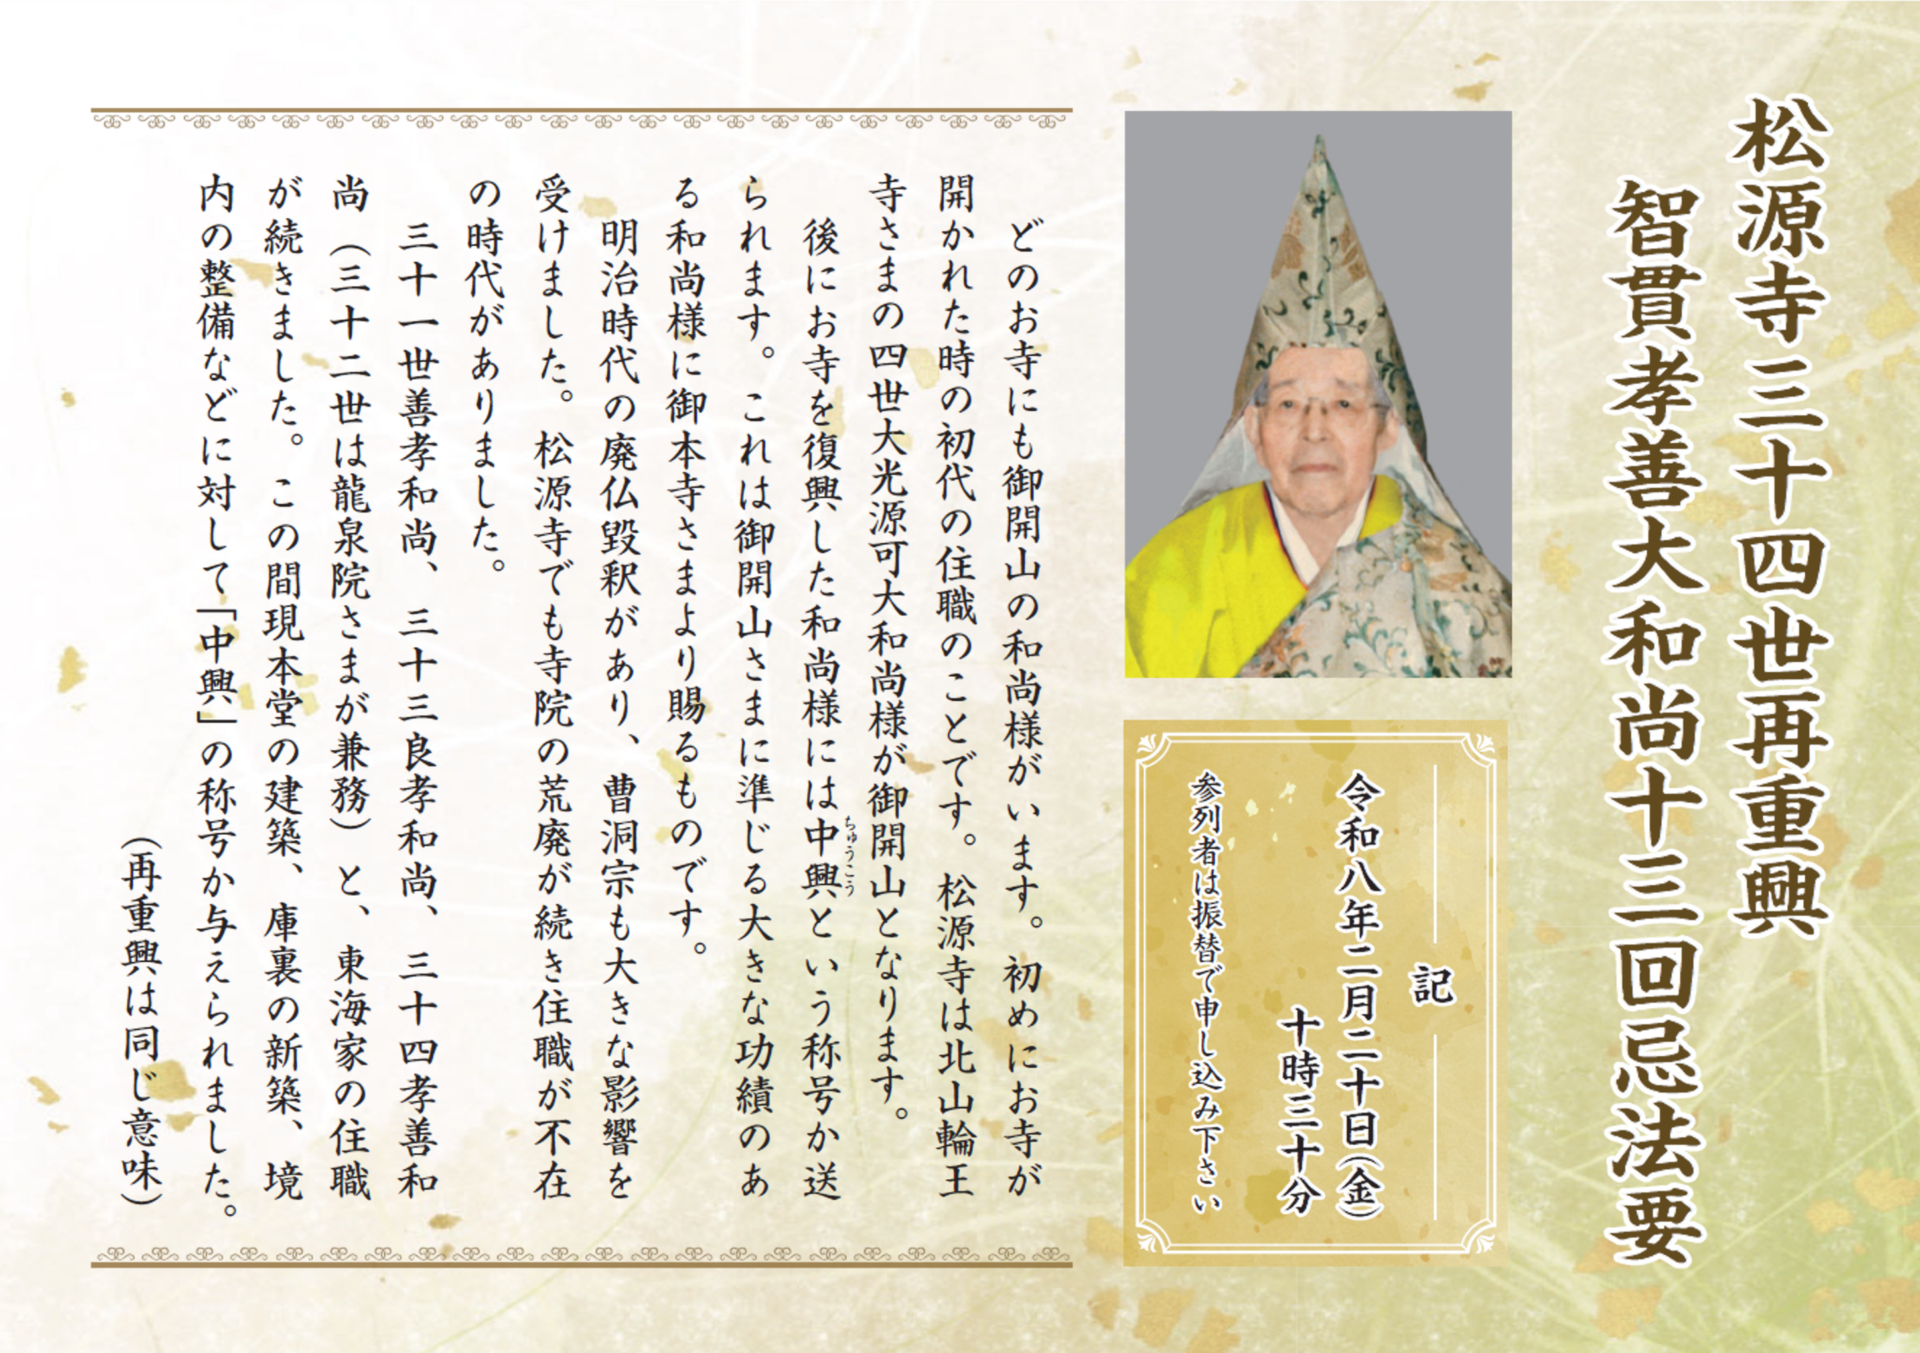 松源寺三十四世再重興
智貫孝善大和尚十三回忌法要
記
令和八年二月二十日(金)
十時三十分
参列者は振替で申し込み下さい
どのお寺にも御開山の和尚様がいます。初めにお寺が
開かれた時の初代の住職のことです。松源寺は北山輪王
寺さまの四世大光源可大和尚様が御開山となります。
後にお寺を復興した和尚様には中興という称号か送
ちゅうこう
られます。これは御開山さまに準じる大きな功績のあ
る和尚様に御本寺さまより賜るものです。
明治時代の廃仏毀釈があり、曹洞宗も大きな影響を
受けました。松源寺でも寺院の荒廃が続き住職が不在
の時代がありました。
三十一世善孝和尚、三十三良孝和尚、三十四孝善和
尚(三十二世は龍泉院さまが兼務)と、東海家の住職
が続きました。この間現本堂の建築、庫裏の新築、境
内の整備などに対して「中興」の称号か与えられました。
(再重興は同じ意味)